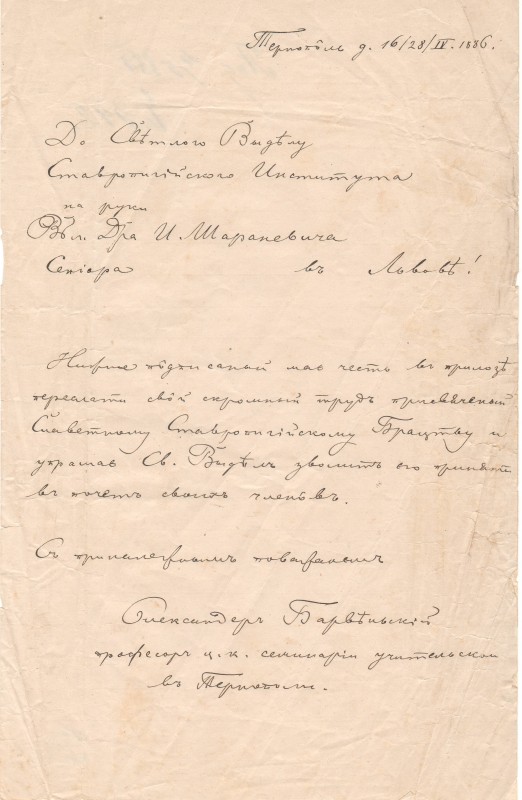 Тернопôль д. 16/28/IV. 1886.
До Свѣтлого Выдѣлу
Ставропигійского Института
на руки
Дра И. Шараневича
Сеніора въ Львовѣ!
Низше пôдписаный мае честь въ прилозѣ
переслати свôй скромный трудъ присвяченый
Славетному Ставропигійскому Брацтву и
упрашае Св. Выдѣлъ зволить его приняти
въ почетъ своихъ членôвъ.
Съ приналежнымъ поважаньемъ
Олександеръ Барвѣньскій
професоръ ц. к. семинаріи учительскои
въ Тернополи.